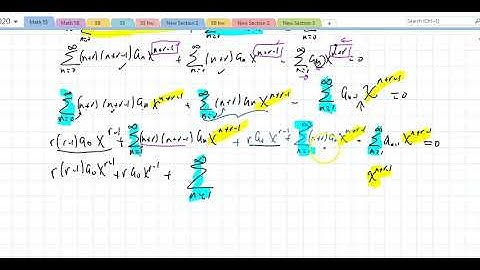 020 Math 55 Math 58 3B 3S 3B Inv 3S Inv New Section 2 New Section 1 New Section 3
∑_{n=0}^{∞} (n+r)(n+r-1) a_n x^{n+r-1} + ∑_{n=0}^{∞} (n+r) a_n x^{n+r-1} - ∑_{n=0}^{∞} a_n x^{n+r} = 0
∑_{n=0}^{∞} (n+r)(n+r-1) a_n x^{n+r-1} + ∑_{n=0}^{∞} (n+r) a_n x^{n+r-1} - ∑_{n=1}^{∞} a_{n-1} x^{n+r-1} = 0
r(r-1) a_0 x^{r-1} + ∑_{n=1}^{∞} (n+r)(n+r-1) a_n x^{n+r-1} + r a_0 x^{r-1} + ∑_{n=1}^{∞} (n+r) a_n x^{n+r-1} - ∑_{n=1}^{∞} a_{n-1} x^{n+r-1} = 0
r(r-1) a_0 x^{r-1} + r a_0 x^{r-1} + ∑_{n=1}^{∞} x^{n+r-1}